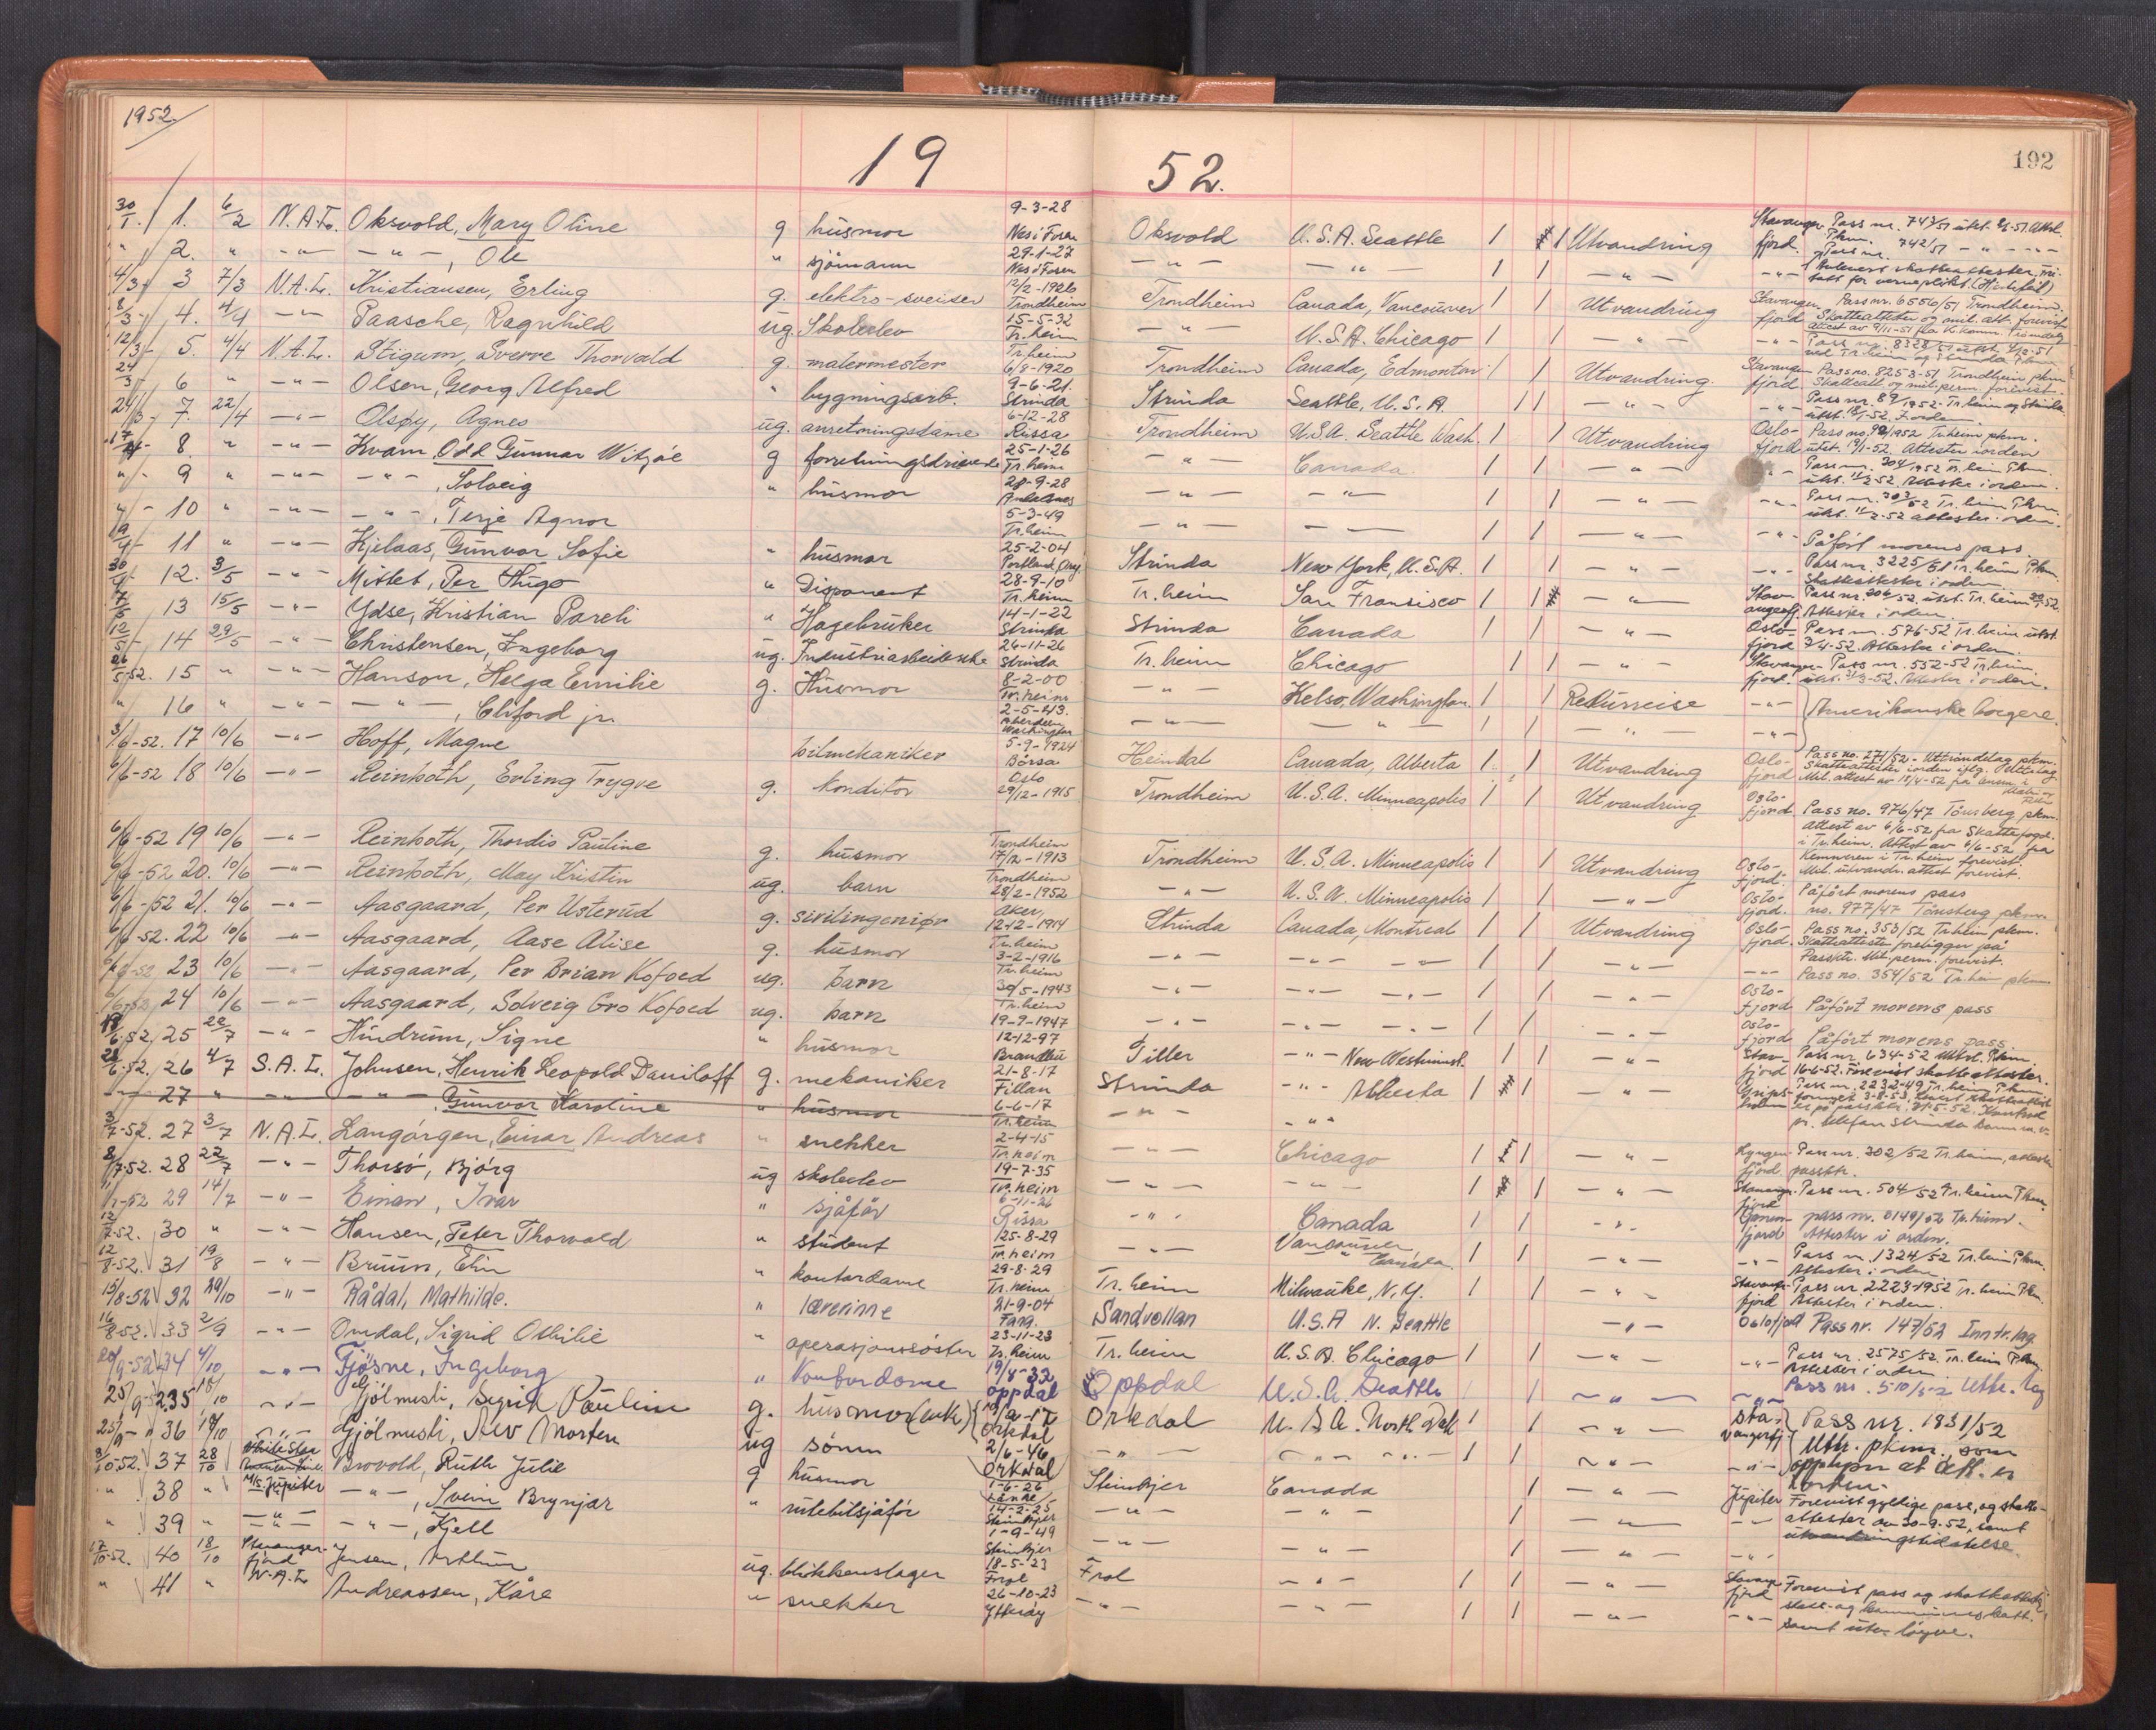 1952.
19 52.
192
30/1. 1. 6/2 N.A.L. Oksvold, Mary Oline g husmor 9-3-28 Nes i Fosen Oksvold U.S.A. Seattle 1 1 Utvandring Stavangerfjord Pass nr. 743/51
" 2. " -"- -"-, Ole " sjömann 29-1-27 Nes i Fosen -"- -"- 1 1 -"- -"- Pass nr. 742/51
4/3 3 7/3 N.A.L. Kristiansen, Erling g. elektro-sveiser 12/2-1926 Trondheim Trondheim Canada, Vancouver 1 1 Utvandring Stavangerfjord Pass nr. 6556/51 Trondheim.
8/3 4. 4/4 -"- Paasche, Ragnhild ug. Skoleelev 15-5-32 Tr.heim -"- U.S.A. Chicago 1 1 -"- -"- Pass nr. 8328/51
12/3 5. 4/4 N.A.L. Stigum, Sverre Thorvald g. malermester Tr.heim 6/8-1920 Trondheim Canada, Edmonton 1 1 Utvandring. Stavangerfjord Pass no. 8253-51 Trondheim pkm. Skatteatt. og mil.perm. forevist.
24/3 6 " -"- Olsen, Georg Alfred " bygningsarb. 9-6-21. Strinda Strinda Seattle, U.S.A. 1 1 -"- -"- Pass nr. 89/1952 Tr.heim og Strinda utst. 18/1-52. I orden
24/3 7. 22/4 -"- Olsøy, Agnes ug. anretningsdame 6-12-28 Rissa Trondheim U.S.A. Seattle Wash. 1 1 Utvandring Oslofjord Pass no. 92/1952 Tr.heim pkm. utst. 19/1-52. Attester i orden
17/4 8. " -"- Kvam, Odd Gunnar Witzøe g forretningsdrivende 25-1-26 Tr.heim -"- Canada 1 1 -"- -"- Pass nr. 304/1952 Tr.heim Pkm. utst. 11/2-52. Attester i orden.
" 9 " -"- -"-, Solveig " husmor 28-9-28 -"- -"- 1 1 -"- -"- Pass nr. 303/52 Tr.heim Pkm. utst. 11/2-52 attester i orden.
" 10 " -"- -"-, Terje Agnor 5-3-49 Tr.heim -"- -"- 1 1 -"- -"- Påført morens pass
19/4 11 " -"- Kjelaas, Gunvor Sofie " husmor 25-2-04 Portland, Oreg. Strinda New York, U.S.A. 1 1 -"- -"- Pass nr. 3225/51 Tr.heim Pkm. Skatteattester i orden
30/4 12. 3/5 -"- Mittet, Per Hugo " Disponent 28-9-10 Tr.heim Tr.heim San Fransisco 1 1 -"- Stavangerfj. Pass nr. 206/52 utst. Tr.heim Attester i orden.
13 15/5 -"- Ydse, Kristian Pareli " Hagebruker 14-1-22 Strinda Strinda Canada 1 1 -"- Oslofjord Pass nr. 576-52 Tr.heim utst. 3/4-52. Attester i orden.
12/5 14 29/5 -"- Christensen, Ingeborg ug. Industriarbeiderske 26-11-26 Strinda Tr.heim Chicago 1 1 -"- Stavangerfjord. Pass nr. 552-52 Tr.heim, utst. 31/3-52. Attester i orden.
26/5-52. 15 " -"- Hanson, Helga Emilie g. Husmor 8-2-00 Tr.heim -"- Kelso, Washington 1 1 Returreise -"- Amerikanske borgere.
" 16 " -"- -"-, Cliford jr. 2-5-43. Aberdeen Washington -"- -"- 1 1 -"- -"-
3/6-52. 17 10/6 -"- Hoff, Magne bilmekaniker 5-9-1924 Börsa Heimdal Canada, Alberta 1 1 Utvandring Oslofjord Pass no. 271/52 - Uttröndelag pkm.
6/6-52 18 10/6 -"- Reinboth, Erling Trygve g. konditor Oslo 29/12-1915 Trondheim U.S.A. Minneapolis 1 1 Utvandring Oslofjord Pass no. 976/47 Tönsberg pkm. Attest av 6/6-52 fra Skattefogd. i Tr.heim. Attest av 6/6-52 fra Kemneren i Tr.heim forevist. Mil. utvandr. attest forevist.
6/6-52 19 10/6 -"- Reinboth, Thordis Pauline g. husmor Trondheim 17/12-1913 Trondheim U.S.A. Minneapolis 1 1 Utvandring Oslofjord.
6/6-52 20. 10/6 -"- Reinboth, May Kristin ug. barn Trondheim 28/2-1952 -"- U.S.A. Minneapolis 1 1 -"- Oslofjord. Påført morens pass no. 977/47 Tönsberg pkm.
6/6-52 21. 10/6 -"- Aasgaard, Per Usterud g. sivilingeniør Aker, 12-12-1914 Strinda Canada, Montreal 1 1 Utvandring Oslofjord. Pass no. 353/52 Tr.heim pkm. Skatteattester foreligger på Passktr. Mil. perm. forevist.
6/6-52. 22 10/6 -"- Aasgaard, Aase Alise g. husmor Tr.heim 3-2-1916 -"- -"- -"- 1 1 -"- -"- Pass no. 354/52 Tr.heim pkm
6/6-52 23 10/6 -"- Aasgaard, Per Brian Kofoed ug. barn Tr.heim 30/5-1943 -"- -"- -"- 1 1 -"- Oslofjord Påført morens pass
6/6-52 24 10/6 -"- Aasgaard, Solveig Gro Kofoed ug. barn Tr.heim 19-9-1947 -"- -"- -"- 1 1 -"- Oslofjord Påført morens pass.
6-52, 25 22/7 -"- Hindrum, Signe " husmor 12-12-97 Brandbu Tiller -"- New Westminst. 1 1 -"- Stav.fjord Pass nr. 634-52 Uttrl. Pkm. 16-6-52. Forevist skatteattester.
6-52. 26 4/7 S.A.L. Johnsen, Henrik Leopold Daniloff g. mekaniker 21-8-17 Fillan Strinda -"- Alberta 1 1 -"- Gripsholm Pass nr. 2232-49 Tr.heim Pkm.
27 " -"- -"-, Gunvor Karoline " husmor 6-6-17 Tr.heim -"- -"-
3/7-52. 27 3/7 N.A.L. Langørgen, Einar Andreas " snekker 2-4-15 Tr.heim -"- Chicago 1 1 -"- Lyngenfjord Pass nr. 302/52 Tr.heim, attester passktr.
8/7-52. 28 22/7 -"- Thorsö, Bjørg ug skoleelev 19-7-35 Tr.heim -"- -"- 1 1 -"- Stavangerfjord Pass nr. 504/52 Tr.heim Pkm.
11/7-52 29 14/7 -"- Einan, Ivar " sjåför 6-11-26 Rissa -"- Canada 1 1 -"- pass nr. 0149/52 Tr.heim. Attester i orden.
12/7-52. 30 " -"- Hansen, Peter Thorvald " student 25-8-29 Tr.heim -"- Vancouver, Canada 1 1 -"- -"- Pass nr. 1324/52 Tr.heim Pkm. Attester i orden
12/8-52. 31 19/8 -"- Bruun, Elin " kontordame 29-8-29 Tr.heim Tr.heim Milwauke, N.Y. 1 1 -"- Stavangerfjord Pass nr 2223-1952 Tr.heim Pkm. Attester i orden.
15/8-52 32 29/10 -"- Rådal, Mathilde. " lærerinne 21-9-04 Sandvollan U.S.A N. Seattle -"- Oslofjord Pass nr. 147/52 Inntr.lag
16/8-52. 33 2/9 -"- Omdal, Sigrid Othilie " operasjonssöster 23-11-23 Tr.heim Tr.heim U.S.A. Chicago 1 1 -"- -"- Pass nr. 2575/52. Tr.heim Pkm. Attester i orden
20/9-52 34 4/10 -"- Fjösne, Ingeborg " Kontordame 19/8-32 Oppdal Oppdal U.S.A. Seattle -"- -"- Pass nr. 510/52 Uttr.lag
25/9-52 35 /10 -"- Gjölmesli, Sigrid Pauline g. husmor (enke) Orkdal Orkdal U.S.A. North Dak 1 1 -"- Stavangerfj. Pass nr. 1831/52 Uttr. pkm., som opplyser at att. er i orden.
25/9 36 /10 -"- Gjölmesli, Morten ug sönn 2/6-46 Orkdal -"- -"- -"- 1 1 -"- -"-
3/10-52. 37 28/10 White Star M/s. Jupiter Brovold, Ruth Julie g husmor 1-6-26 Lånke Steinkjer Canada 1 -"- Jupiter Forevist gyldige pass, og skatteattester av 30-9-52, samt utvandringstidatelse.
" 38 " -"- -"-, Svein Brynjar " rutebilsjåfør 14-2-25 Steinkjer -"- -"- 1 -"- -"-
" 39 " -"- -"-, Kjell 1-9-49 Steinkjer -"- -"- 1 -"- -"-
17/10-52. 40 18/10 Stavangerfjord N.A.L Jensen, Arthur ug. blikkenslager 18-5-23 Frol Frol -"- 1 1 -"- Stavangerfjord Forevist pass og skatteattest, samt
" 41 " Andreassen, Kåre " snekker 26-10-23 Ytterøy -"- -"- 1 1 -"- -"-